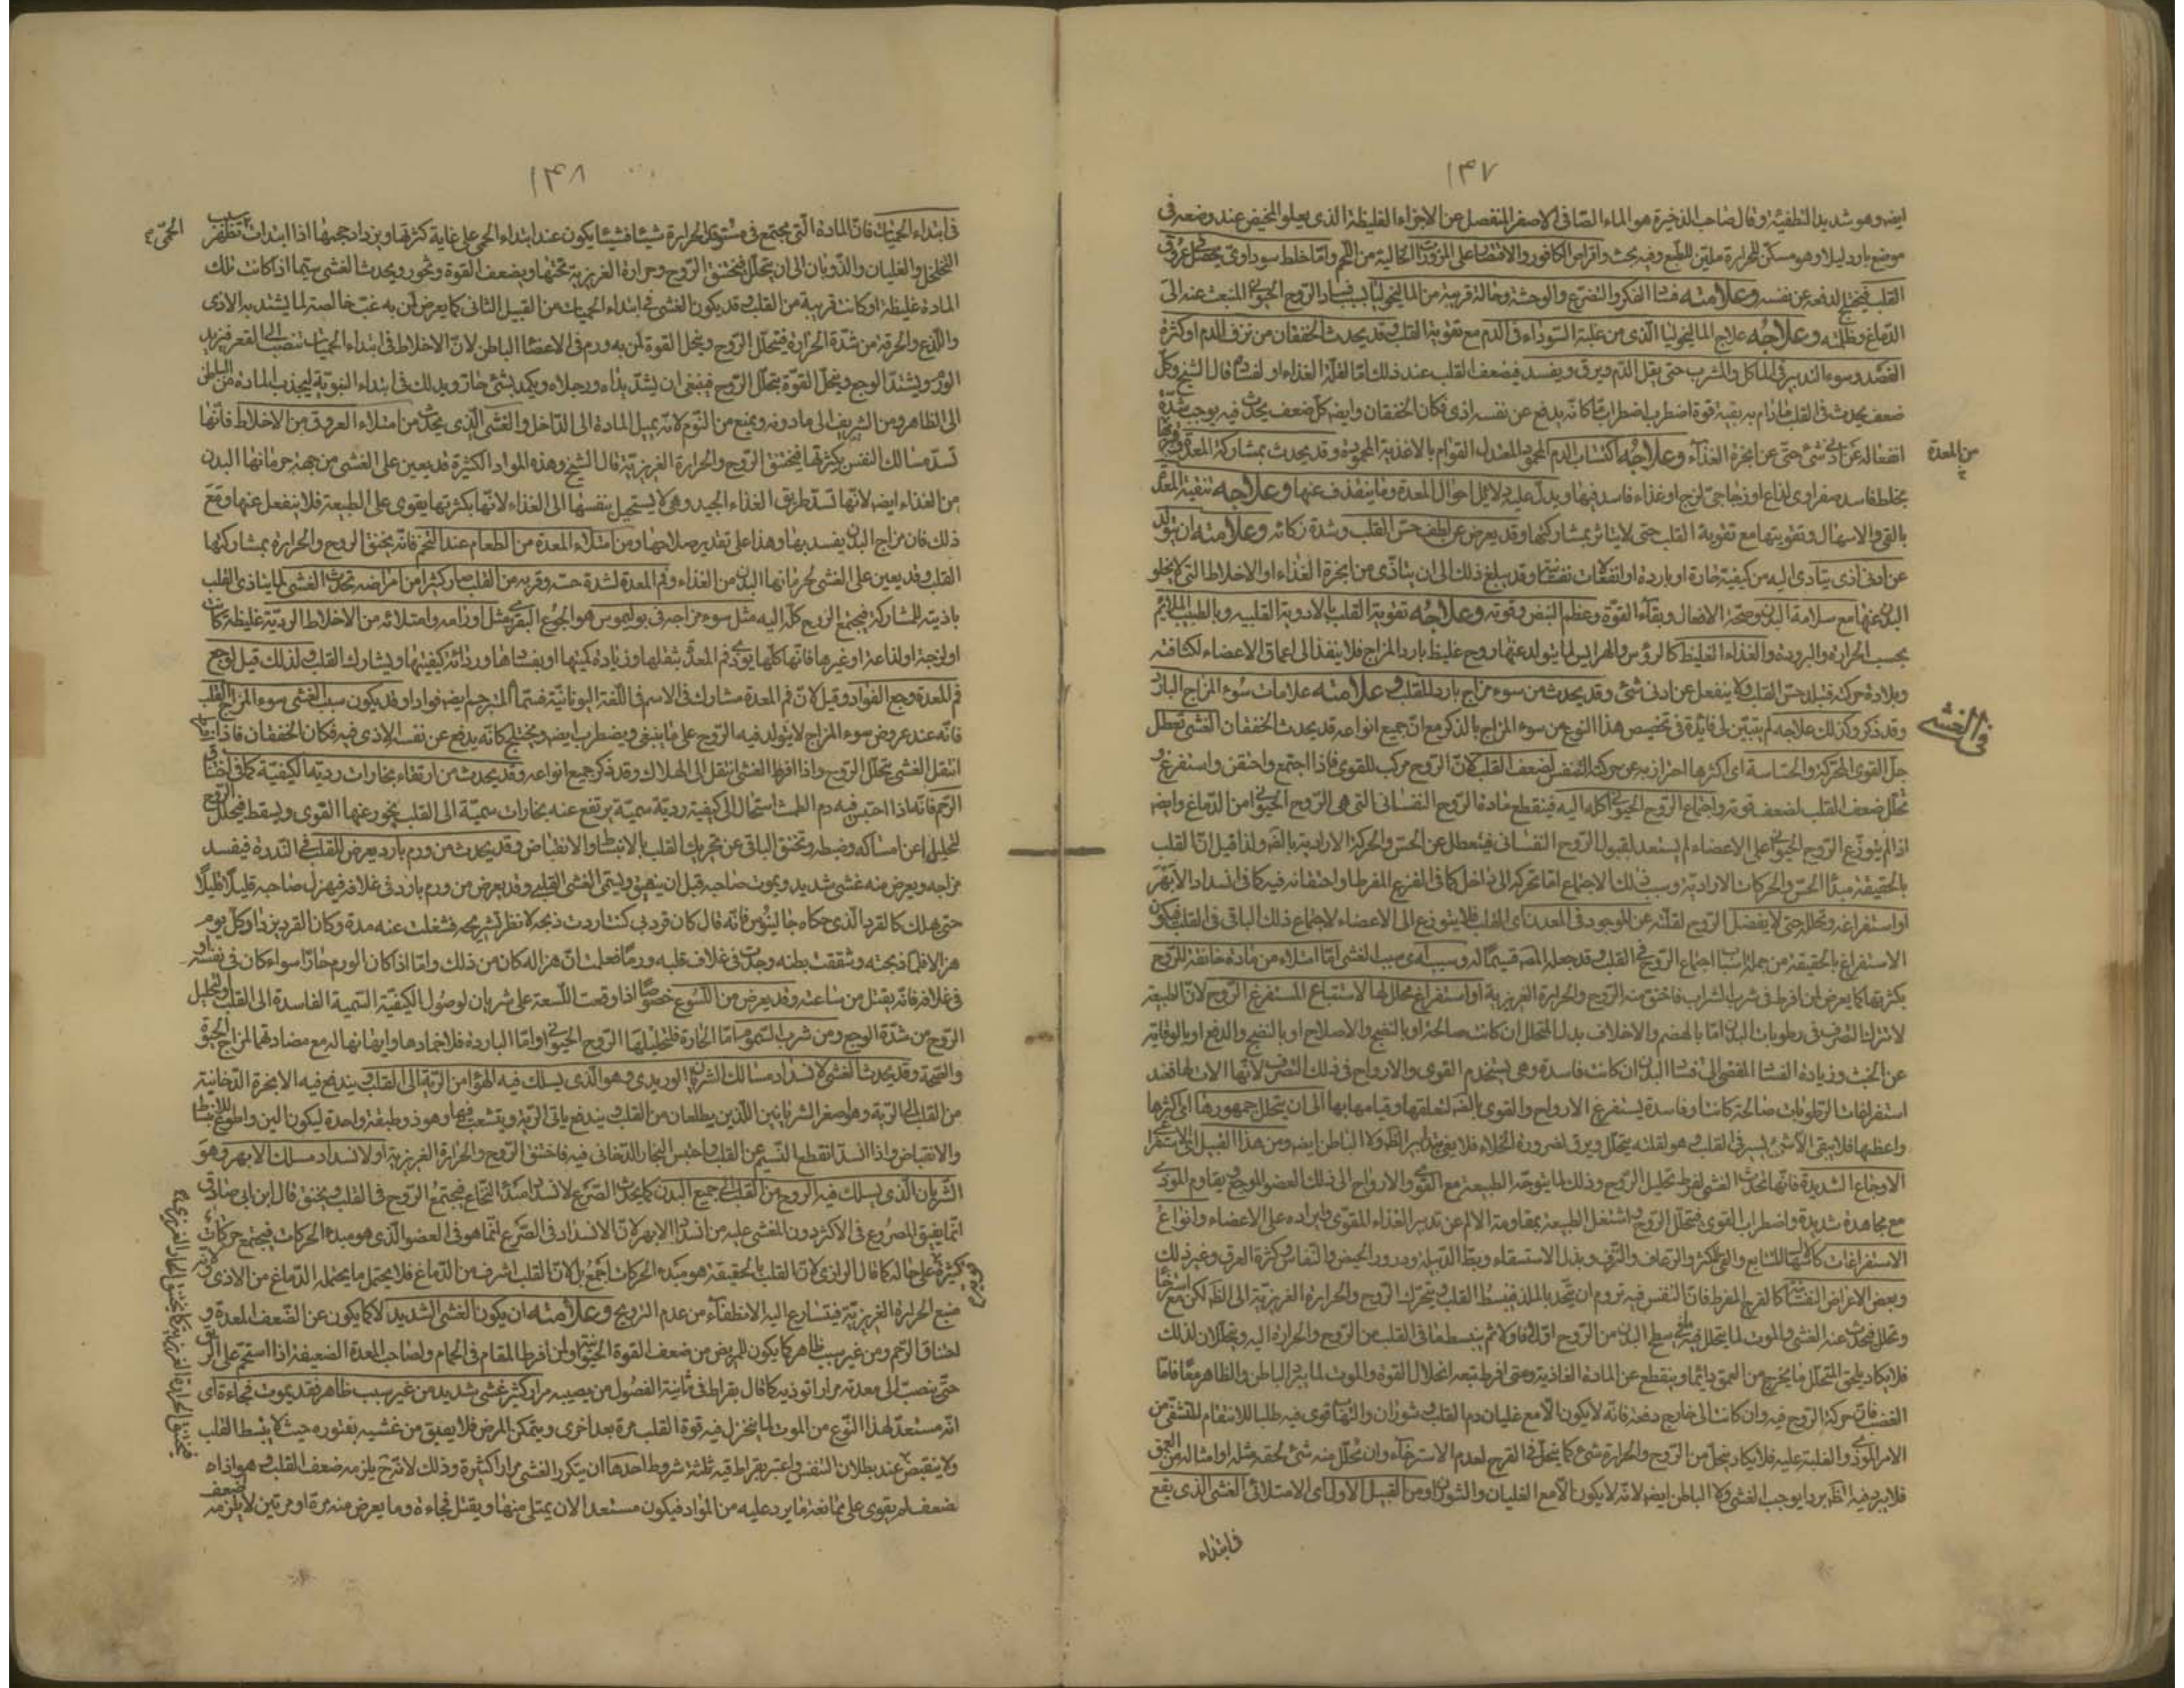 ١٤٧
ايضا وهو شديد التطفية وقال صاحب الذخيرة هو الماء الصافى الاصفر المنفصل عن الاجزاء الغليظة الذى يعلو المخيض عند وضعه فى
موضع بارد ليلا وهو مسكن للحرارة ملين للطبع وفيه بحث واقراص الكافور والاقتصار على المزورات الخالية من اللحم واما خلط سوداوى يحصل فى عروق
القلب فيختلج لدفعه عن نفسه وعلامته فساد الفكر والتفزع والوحشة وحالة قريبة من الماليخوليا بسبب فساد الروح الحيوانى المنبعث عنه الى
الدماغ وظلمته وعلاجه علاج الماليخوليا الذى من غلبة السوداء فى الدم مع تقوية القلب وقد يحدث الخفقان من نزف الدم او كثرة
الفصد وسوء التدبير فى المأكل والمشرب حتى يقل الدم ويرق ويفسد فيضعف القلب عند ذلك اما لقلة الغذاء او لفساده قال الشيخ وكل
ضعف يحدث فى القلب مادام به بقية قوة اضطرب اضطرابا كانه يدفع عن نفسه اذى فكان الخفقان وايضا كل ضعف يحدث فيه يوجب شدة
انفعاله عن ادنى شئ حتى عن ابخرة الغذاء وعلاجه اكتساب الدم المحمود المعتدل القوام بالاغذية المحمودة وقد يحدث بمشاركة المعدة
من المعدة
بخلط فاسد صفراوى لذاع او زجاجى لزج او غذاء فاسد فيها ويدل عليه دلائل احوال المعدة وما ينقذف عنها وعلاجه تنقية المعدة
بالقئ والاسهال وتقويتها مع تقوية القلب حتى لا يتاثر بمشاركتها وقد يعرض عن لطف حس القلب وشدة ذكائه وعلامته ان يتولد
عن ادنى اذى يتادى اليه من كيفية حارة او باردة او انفعالات نفسانية وقد يبلغ ذلك الى ان يتاذى من ابخرة الغذاء او الاخلاط التى لا يخلو
البدن عنها مع سلامة البدن وصحة الافعال وبقاء القوة وعظم النبض وقوته وعلاجه تقوية القلب بالادوية القلبية وبالطيب الملايم
بحسب الحرارة والبرودة والغذاء الغليظ كالرؤس والهرايس لما يتولد عنها روح غليظ بارد المزاج فلا ينفذ الى اعماق الاعضاء لكثافته
وبلادة حركته فيتبلد حس القلب ولا ينفعل عن ادنى شئ وقد يحدث من سوء مزاج بارد للقلب وعلامته علامات سوء المزاج البارد
فى الغشى
وقد ذكر وكذلك علاجه لم يتبين لى فائدة فى تخصيص هذا النوع من سوء المزاج بالذكر مع ان جميع انواعه قد يحدث الخفقان الغشى تعطل
جل القوى المحركة والحساسة اى اكثرها احتراز به عن حركة التنفس لضعف القلب لان الروح مركب للقوى فاذا اجتمع واحتقن واستفرغ و
تحلل ضعف القلب لضعف قوته واجتماع الروح الحيوانى كله اليه فينقطع مادة الروح النفسانى التى هى الروح الحيوانى من الدماغ وايضا
اذا لم يتوزع الروح الحيوانى على الاعضاء لم يستعد لقبول الروح النفسانى فيتعطل عن الحس والحركة الارادية بالقوة ولذا قيل ان القلب
بالحقيقة مبدأ الحس والحركات الارادية وسبب ذلك الاجتماع اما تحركه الى داخل كما فى الفزع المفرط او احتقانه فيه كما فى انسداد الابهر
او استفراغه وتحلله حتى لا يفضل الروح لقلته عن الموجود فى المعدن اى القلب فلا يتوزع الى الاعضاء لاجتماع ذلك الباقى فى القلب فيكون
الاستفراغ بالحقيقة من جملة اسباب اجتماع الروح فى القلب وقد جعله المص قسيما له وسببه اى سبب الغشى اما امتلاء من مادة خانقة للروح
بكثرتها كما يعرض لمن افرط فى شرب الشراب فاختنق منه الروح والحرارة الغريزية او استفراغ محلل لها لاستتباع المستفرغ الروح لان الطبيعة
لا تترك التصرف فى رطوبات البدن اما بالهضم والاخلاف بدلا لمتحلل ان كانت صالحة او بالنضج والاصلاح او بالنضج والدفع او بالوقاية
عن الخبث وزيادة الفساد المفضى الى فساد البدن ان كانت فاسدة وهى يستخدم القوى والارواح فى ذلك التصرف لانها الات لها فعند
استفراغات الرطوبات صالحة كانت او فاسدة يستفرغ الارواح والقوى بالقوة لتعلقها وقيامها بها الى ان يتحلل جمهورها اى اكثرها
واعظمها فلا يبقى الا شئ يسير فى القلب وهو لقلته يتحلل ويرق لضرورة الخلاء فلا يفى بتدبير الظاهر ولا الباطن ايضا ومن هذا القبيل اى الاستفراغى
الاوجاع الشديدة فانها تحدث الغشى لفرط تحليل الروح وذلك لما يتوجه الطبيعة مع القوى والارواح الى ذلك العضو الموجع ويقاوم الموذى
مع مجاهدة شديدة واضطراب القوى فتحلل الروح واشتغل الطبيعة بمقاومة الالم عن تدبير الغذاء المقوى وايراده على الاعضاء وانواع
الاستفراغات كالاسهال المتتابع والقئ المكثر والرعاف والنزف وبزل الاستسقاء وبط الدبيلة ودرور الحيض والنفاس وكثرة العرق وغير ذلك
وبعض الاعراض النفسانية كالفرح المفرط فان النفس فيه تروم ان تتحد بالملذ فينبسط القلب ويتحرك الروح والحرارة الغريزية الى الظاهر لكن مع استرخاء
وتحلل فيحدث عنه الغشى والموت لما يتحلل به ما فى سطح البدن من الروح اولا فاولا ثم ينبسط ما فى القلب من الروح والحرارة اليه ويتحللان لذلك
فلا يكاد يلحق المتحلل ما يخرج من العمق دائما وينقطع عن المادة الغاذية ومتى افرط تبعه انحلال القوة والموت لما يبرد الباطن والظاهر معا فاما
الغضب فان حركة الروح فيه وان كانت الى خارج دفعة فانه لا يكون الا مع غليان دم القلب وثوران والتهاب قوى فيه طلبا للانتقام للتشفى من
الامر الموذى والغلبة عليه فلا يكاد يتحلل من الروح والحرارة شئ كما يتحلل فى الفرح لعدم الاسترخاء وان تحلل منه شئ لحقه مثله او امثاله من العمق
فلا يبرد فيه الظاهر بردا يوجب الغشى ولا الباطن ايضا لانه لا يكون الا مع الغليان والثوران ومن القبيل الاول اى الامتلائى الغشى الذى يقع
فى ابتداء
١٤٨
فى ابتداء الحميات فان المادة التى تجتمع فى مستوقد الحرارة شيئا فشيئا يكون عند ابتداء الحمى على غاية كثرتها ويزداد حجمها اذا ابتدات بسبب تظفر
الحمى
التخلخل والغليان والذوبان الى ان يتحلل فيختنق الروح وحرارة الغريزية تحتها ويضعف القوة وتخور ويحدث الغشى سيما اذا كانت تلك
المادة غليظة او كانت قريبة من القلب وقد يكون الغشى فى ابتداء الحميات من القبيل الثانى كما يعرض لمن به غب خالصة لما يشتد به الاذى
واللذع والحرقة من شدة الحرارة فيتحلل الروح وينحل القوة لمن به ورم فى الاعضاء الباطن لان الاخلاط فى ابتداء الحميات تنصب الى القعر فيزيد
الورم ويشتد الوجع وينحل القوة بتحلل الروح فينبغى ان يشد يداه ورجلاه ويكمد بشئ حار ويدلك فى ابتداء النوبة ليجذب المادة من الباطن
الى الظاهر ومن الشريف الى مادونه ويمنع من النوم لانه يميل المادة الى الداخل والغشى الذى يحدث من امتلاء العروق من الاخلاط فانها
تسد مسالك النفس بكثرتها فيختنق الروح والحرارة الغريزية قال الشيخ وهذه المواد الكثيرة قد يعين على الغشى من جهة حرمانها البدن
من الغذاء ايضا لانها تسد طريق الغذاء الجيد وهى لا يستحيل بنفسها الى الغذاء لانها بكثرتها يقوى على الطبيعة فلا ينفعل عنها ومع
ذلك فان مزاج البدن يفسد بها وهذا على تقدير صلاحها ومن امتلاء المعدة من الطعام عند التخم فانه يختنق الروح والحرارة بمشاركتها
القلب وقد يعين على الغشى لحرمانها البدن من الغذاء وفم المعدة لشدة حسه وقربه من القلب صار كثيرا من امراضه تحدث الغشى لما يتاذى القلب
باذيته للمشاركة فيجتمع الروح كله اليه مثل سوء مزاجه فى بوليموس هو الجوع البقرى ومثل اورامه وامتلائه من الاخلاط الردية غليظة كانت
او لزجة او لذاعة او غيرها فانها كلها يوذى فم المعدة بثقلها وزيادة كميتها او بفسادها ورداءة كيفيتها ويشارك القلب ولذلك قيل لوجع
فم المعدة وجع الفؤاد وقيل لان فم المعدة مشارك فى الاسم فى اللغة اليونانية فسماه المترجم ايضا فوادا وقد يكون سبب الغشى سوء المزاج للقلب
فانه عند عروض سوء المزاج لا يتولد فيه الروح على ما ينبغى ويضطرب ايضا ويختلج كانه يدفع عن نفسه الاذى فيه فكان الخفقان فاذا افرط
انتقل الغشى بتحلل الروح واذا افرط الغشى انتقل الى الهلاك وقد ذكر جميع انواعه وقد يحدث من ارتقاء بخارات ردية الكيفية كما فى اختناق
الرحم فانه اذا احتبس فيه دم الطمث استحال الى كيفية ردية سمية يرتفع عنه بخارات سمية الى القلب يخور عنها القوى ويسقط فيحلل الروح
لتحليل عن امساكه وضبطه وتختنق الباقى عن تحريك القلب بالانبساط والانقباض وقد يحدث من ورم بارد يعرض للقلب فى الندرة فيفسد
مزاجه ويعرض منه غشى شديد ويموت صاحبه قبل ان ينهق ويسمى الغشى القلبى وقد يعرض من ورم بارد فى غلافه فيهزل صاحبه قليلا قليلا
حتى هلك كالقرد الذى حكاه جالينوس فانه قال كان قرد لى كنت اردت ذبحه لانظر تشريحه فشغلت عنه مدة وكان القرد يزداد كل يوم
هزالا فلما ذبحته وشققت بطنه وجدت فى غلاف قلبه ورما فعلمت ان هزاله كان من ذلك واما اذا كان الورم حارا سواء كان فى نفسه او
فى غلافه فانه يقتل من ساعته وقد يعرض من اللسوع خصوصا اذا وقعت اللسعة على شريان لوصول الكيفية السمية الفاسدة الى القلب وتحليل
الروح من شدة الوجع ومن شرب السموم اما الحارة فلتحليلها الروح الحيوانى واما الباردة فلاخمادها وايهانها له مع مضادتهما المزاج الحيوة
والصحة وقد يحدث الغشى لانسداد مسالك الشريان الوريدى وهو الذى يسلك فيه الهواء من الرية الى القلب ويندفع فيه الابخرة الدخانية
من القلب الى الرية وهو اصغر الشريانين اللذين يطلعان من القلب ويندفع ياتى الرية ويتشعب فيها وهو ذو طبقة واحدة ليكون الين واطوع للانبساط
والانقباض واذا انسد انقطع النسيم عن القلب واحتبس البخار الدخانى فيه فاختنق الروح والحرارة الغريزية او لانسداد مسلك الابهر وهو
الشريان الذى يسلك فيه الروح من القلب الى جميع البدن كما يحدث الصرع لانسداد مبدأ النخاع فيجتمع الروح فى القلب ويختنق قال ابن ابى صادق
انما يفيق المصروع فى الاكثر دون المغشى عليه من انسداد الابهر لان الانسداد فى الصرع انما هو فى العضو الذى هو مبدء الحركات فيجتمع حركات
كثيرة على حاله كما قال الرازى لان القلب بالحقيقة هو مبدء الحركات اجمع بل لان القلب اشرف من الدماغ فلا يحتمل ما يحتمله الدماغ من الاذى
منبع الحرارة الغريزية فيتسارع اليه الانطفاء من عدم الترويح وعلامته ان يكون الغشى الشديد لا كما يكون عن الضعف المعدة و
اختناق الرحم ومن غير سبب ظاهر كما يكون للمريض من ضعف القوة الحيوانية ولمن افرط المقام فى الحمام ولصاحب المعدة الضعيفة اذا استحم على الريق
حتى تنصب الى معدته مرار توذيه كما قال بقراط فى ثانية الفصول من يصيبه مرارا كثيرة غشى شديد من غير سبب ظاهر فقد يموت فجاءة اى
انه مستعد لهذا النوع من الموت لما ينخزل فيه قوة القلب مرة بعد اخرى ويتمكن المرض فلا يفيق من غشيه بفتوره حيث لا ينبسط القلب
ولا ينقبض عند بطلان النفس واعتبر بقراط فيه ثلثة شروط احدها ان يتكرر الغشى مرارا كثيرة وذلك لانه ح يلزمه ضعف القلب وهو اذا
ضعف لم يقوى على ممانعة ما يرد عليه من المواد فيكون مستعدا لان يمتلى منها ويقتل فجاءة وما يعرض منه مرة او مرتين لا يلزمه ضعف
فيختنق الحرارة الغريزية كما يختنق الحار الغريزى